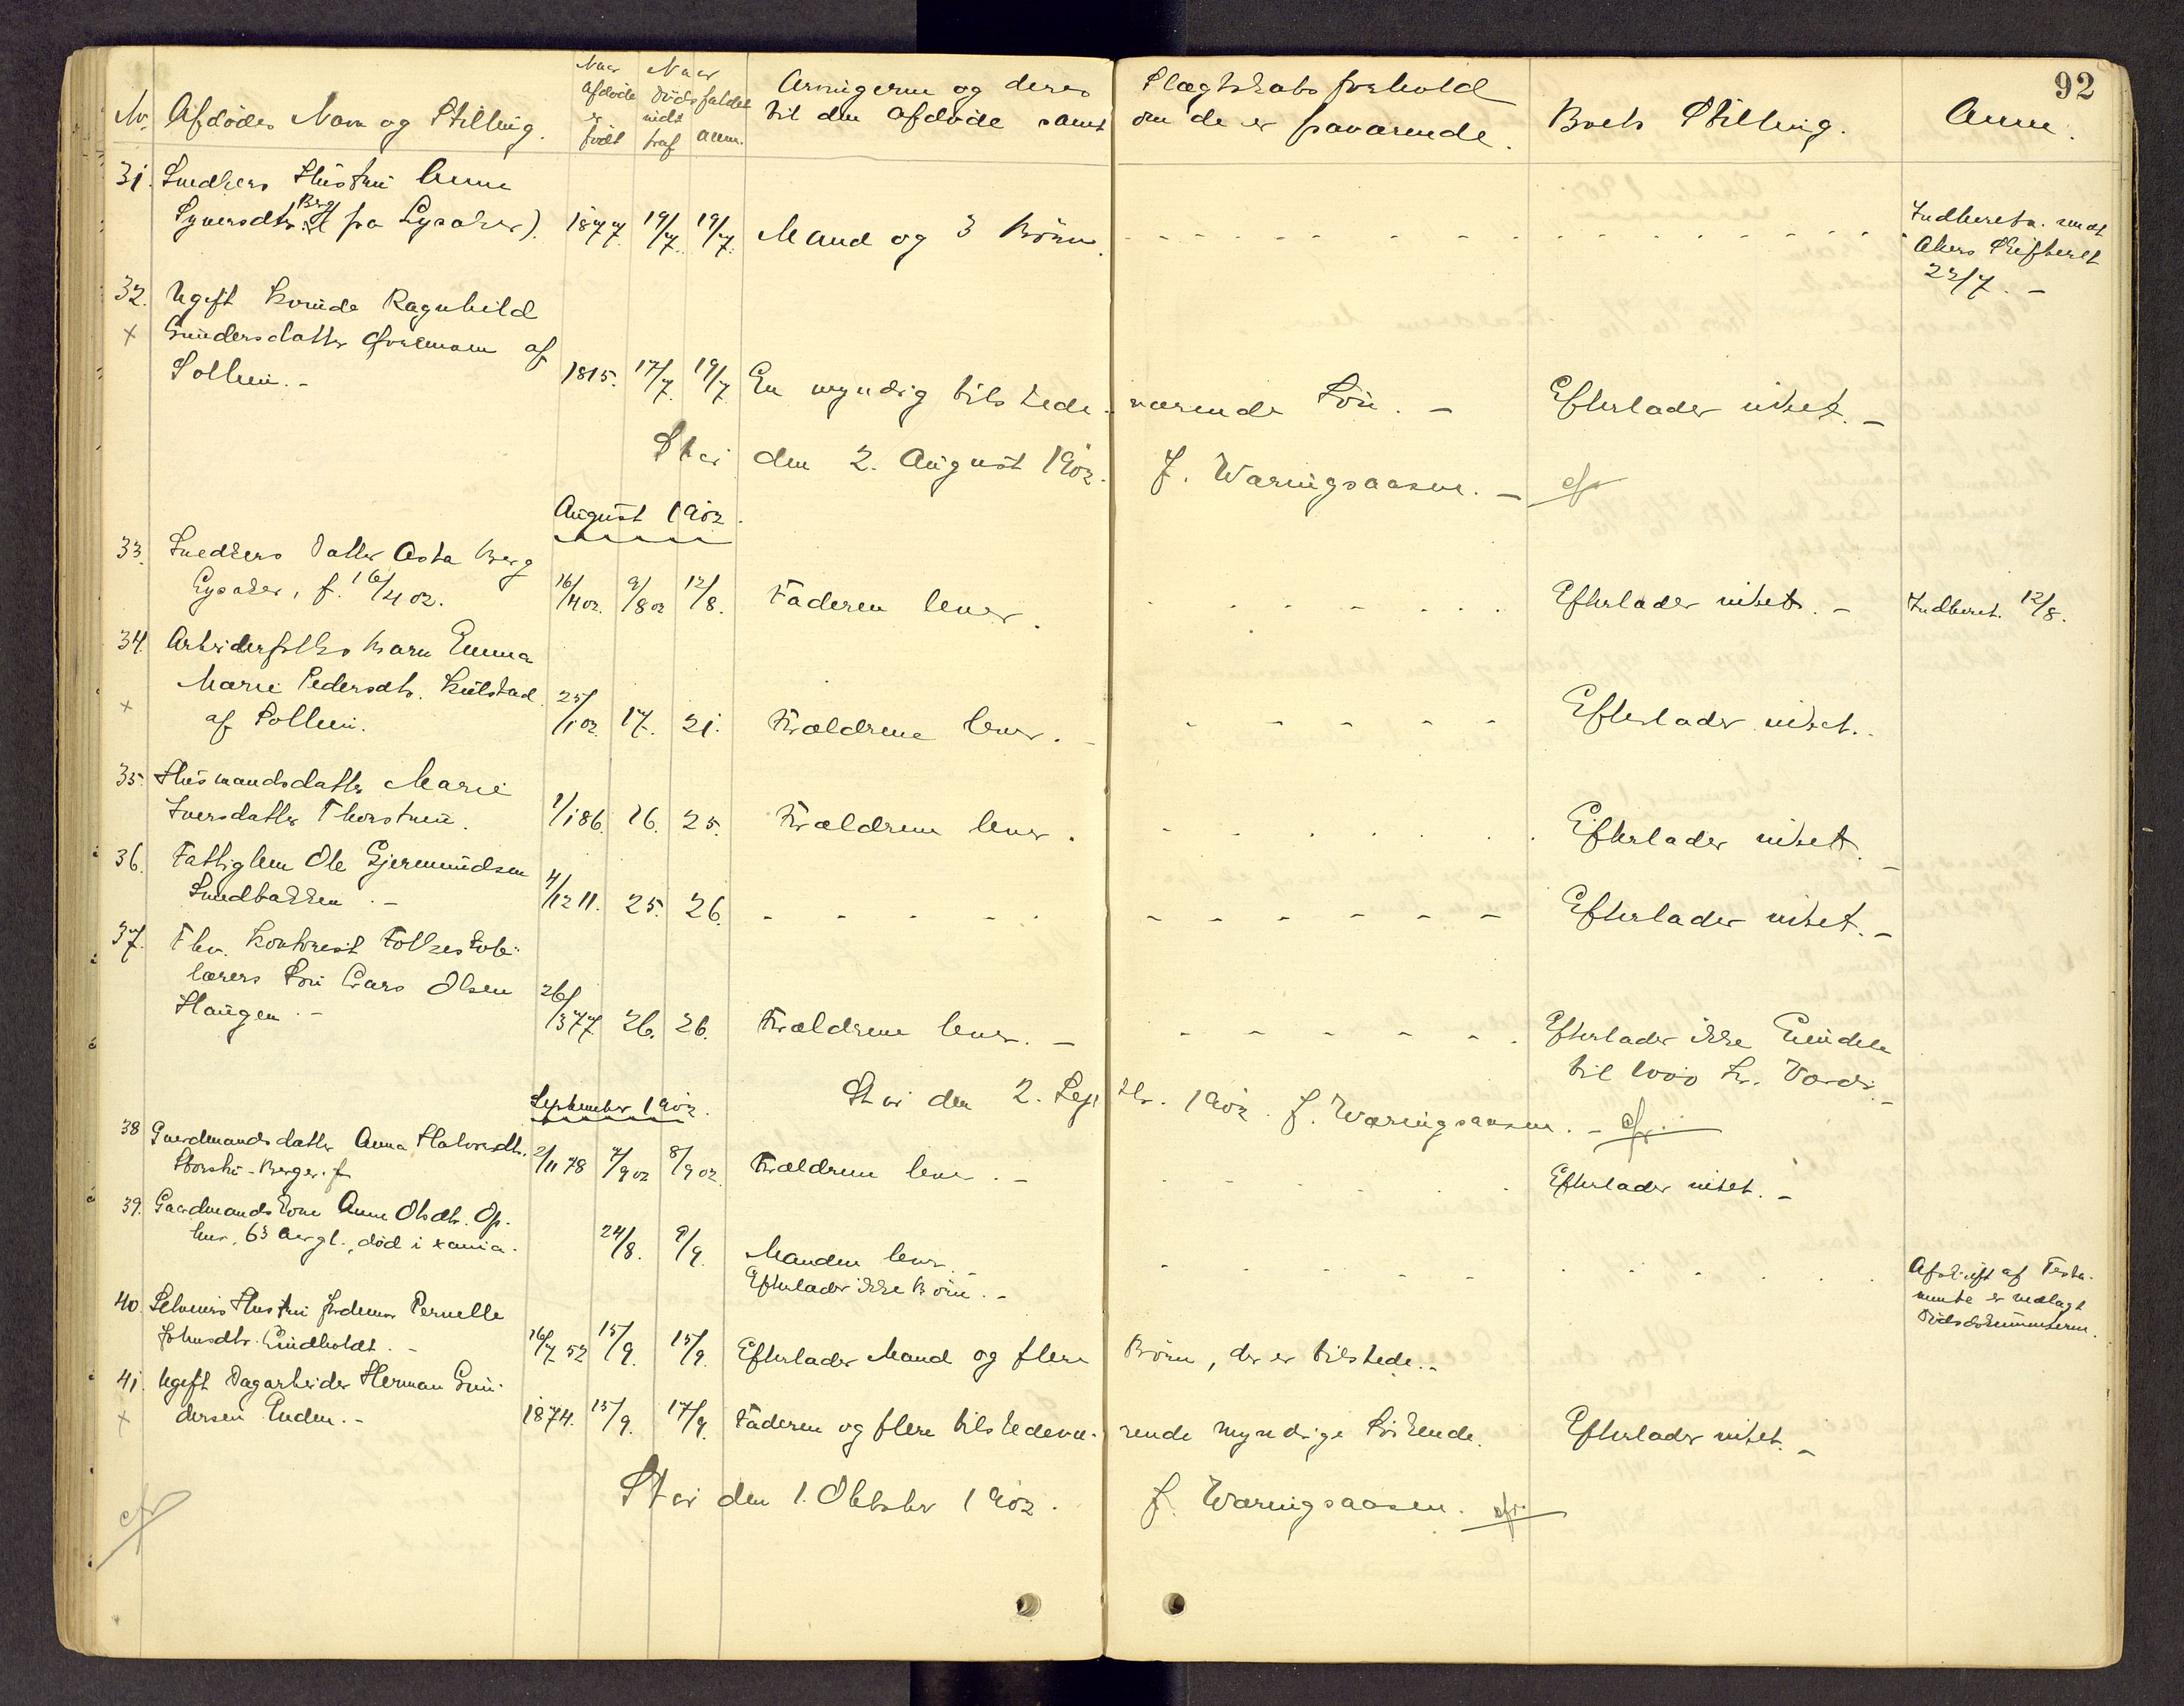 92
No. Afdødes Navn og Stilling. Naar Afdøde er født Naar Dødsfaldet indtraf anm. Arvingerne og deres Slægtskabsforhold til den Afdøde samt om de er fraværende. Boets Stilling. Anm.
31. Snedkers Hustru Anne
Syversdtr. Berg fra Lysaker). 1877 19/7 19/7. Mand og 3 Børn. Indberetn. sendt
Akers Skifteret
23/7. -
32. Ugift Kvinde Ragnhild
x Gundersdatter af
Solhein. - 1815. 17/7 19/7 En myndig tilstedeværende Søn. - Efterlader intet. -
Stai den 2. August 1902. J. Wæringsaasen. - cfr
August 1902.
33. Snedkers Datter Asta Berg
Lysaker, f. 16/4 02. 16/4 02. 9/8 02 12/8. Faderen lever. Efterlader intet. - Indberet. 12/8.
34. Arbeiderfolks Barn Emma
Marie Pedersdtr. Kulstad
x af Solhein. 25/1 02. 17. 21. Forældrene lever. - Efterlader intet.
35. Husmandsdatter Marie
Iversdatter Thorstuen. 1/1 86. 16. 25. Forældrene lever. Efterlader intet.
36. Fattiglem Ole Gjermundsen
Smedbakken. - 4/12 11. 25. 26. Efterlader intet. -
37. Thv. Kontorist Folkeskole-
lærers Søn Lars Olsen
Haugen. - 26/3 77 26. 26. Forældrene lever. - Efterlader ikke Eiendele
til 1000 Kr. Værdi. -
Stai den 2. Septbr. 1902. J. Wæringsaasen. - cfr.
September 1902.
38 Gaardmandsdatter Anna Halvorsdtr.
Storstu-Berger. f 2/11 78 7/9 02 8/9 02. Forældrene lever. - Efterlader intet. -
39. Gaardmandskone Anne Olsdtr. Op-
hus, 63 Aar gl., død i Xania. 24/8. 9/9. Manden lever. -
Efterlader ikke Børn. - Afskrift af Testa-
mente er vedlagt
Dødsdokumenterne.
40. Selveiers Hustru Jordemor Pernelle
Johnsdtr. Lindholdt. - 16/7 52 15/9. 15/9. Efterlader Mand og flere Børn, der er tilstede. -
41. Ugift Dagarbeider Herman Gun-
x dersen Enden. - 1874. 15/9. 17/9. Faderen og flere tilstedeværende myndige Søskende. Efterlader intet. -
Stai den 1. Oktober 1902. J. Wæringsaasen. cfr.
cfr